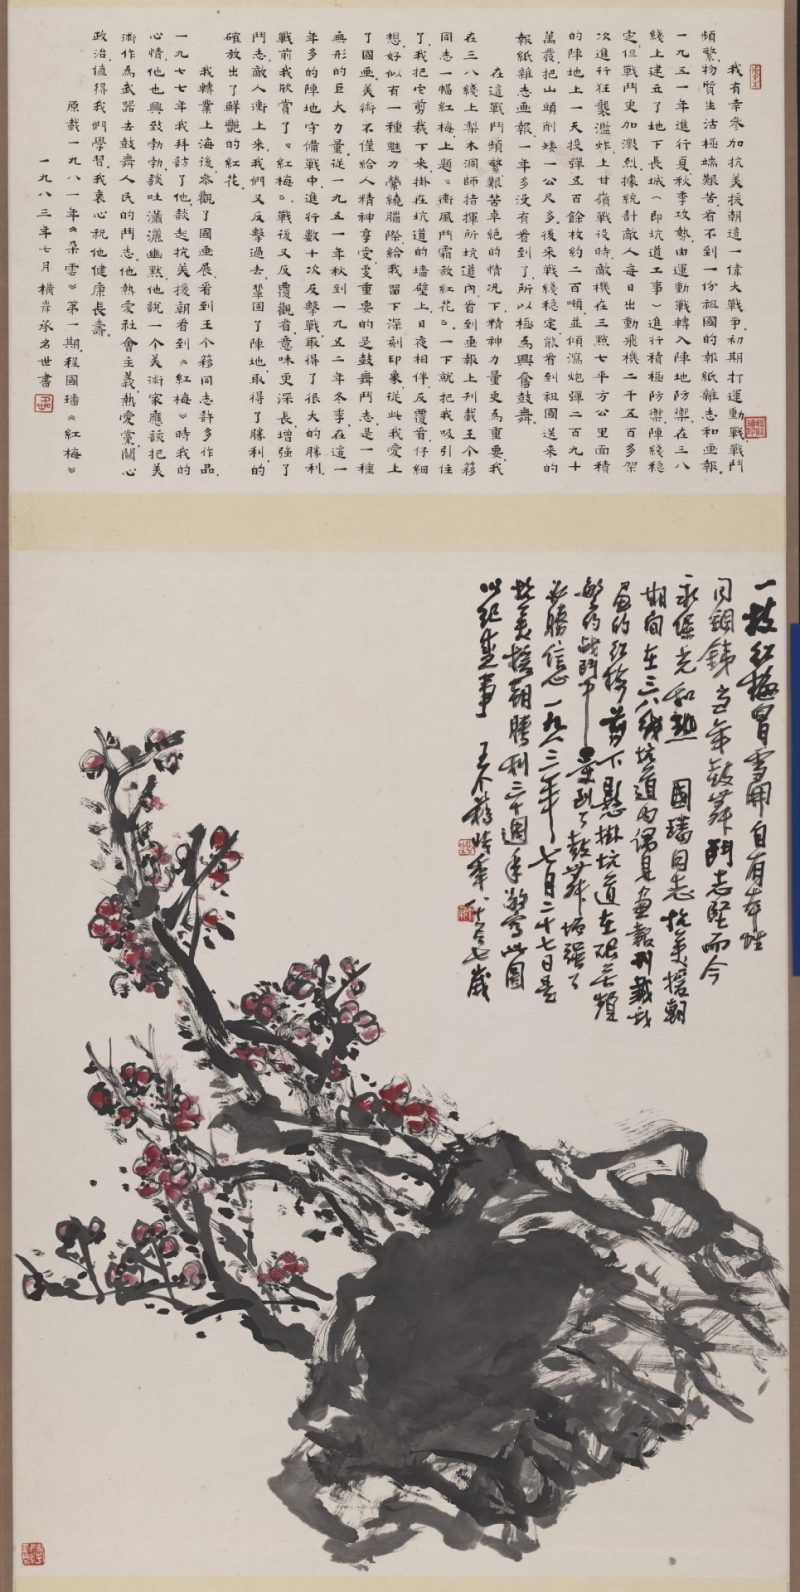 我有幸參加抗美援朝這一偉大戰爭初期打運動戰戰鬥
頻繁物質生活極端艱苦看不到一份祖國的報紙雜志和画報
一九五一年進行夏秋季攻勢由運動戰轉入陣地防禦在三八
綫上建立了地下長城(即坑道工事)進行積極防禦陣綫穩
定但戰鬥更加激烈據統計敵人每日出動飛機二千五百多架
次進行狂襲濫炸上甘嶺戰役時敵機在三點七平方公里面積
的陣地上一天投彈五百餘枚約二百噸並傾瀉炮彈二百九十
萬發把山頭削矮一公尺多後來戰綫穩定能看到祖國送來的
報紙雜志画報一年多没有看到了所以極為興奮鼓舞
在這戰鬥頻繁艱苦卓絕的情况下精神力量更為重要我
在三八綫上梨木洞師指揮所坑道內看到画報上刊載王个簃
同志一幅紅梅上題《衝風鬥霜放紅花》一下就把我吸引住
了我把它剪裁下來掛在坑道的墻壁上日夜相伴反覆看仔細
想好似有一種魅力縈繞腦際給我留下深刻印象從此我愛上
了國画美術不僅給人精神享受更重要的是鼓舞鬥志是一種
無形的巨大力量從一九五一年秋到一九五二年冬季在這一
年多的陣地守備戰中進行數十次反擊戰取得了很大的勝利
戰前我欣賞了《紅梅》戰後又反覆觀看意味更深長增强了
鬥志敵人衝上來我們又反擊過去鞏固了陣地取得了勝利的
確放出了鮮艷的紅花
我轉業上海後参觀了國画展看到王个簃同志許多作品
一九七七年我拜訪了他談起抗美援朝看到《紅梅》時我的
心情他也興致勃勃談吐瀟灑幽默他說一个美術家應該把美
術作為武器去鼓舞人民的鬥志他熱愛社會主義熱愛黨關心
政治值得我們學習我衷心祝他健康長壽
原載一九八一年《朵雲》第一期程國璠《紅梅》
一九八三年七月橫岸承名世書
一枝紅梅冒雪開自有本性
同鋼銕当年鼓舞鬥志堅而今
永保光和熱 國璠同志抗美援朝
期间在三八线坑道内偶見画報刊載我
畫的红梅剪下懸掛坑道在艰苦頻
繁的战鬥中受到了鼓舞增强了
必勝信心一九八三年七月二十七日是
抗美援朝勝利三十週年敬写此圖
以紀盛事 王个簃時年八十有七歲